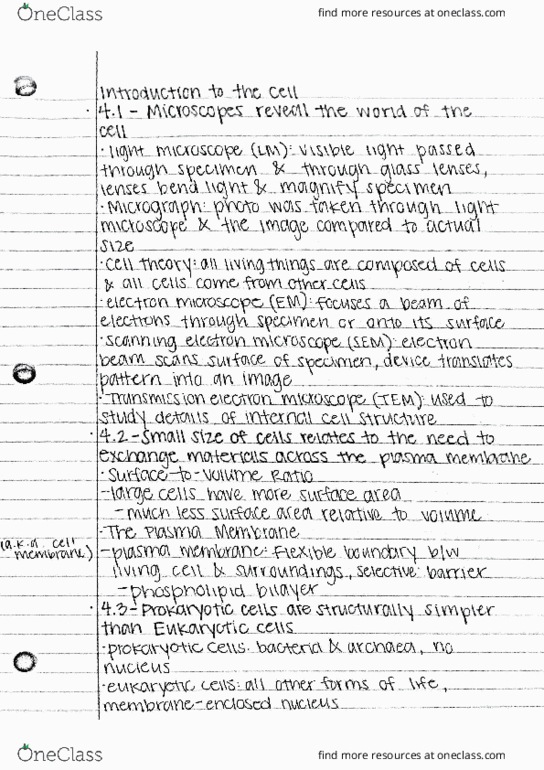 OneClass
find more resources at oneclass.com
Introduction to the cell
· 4.1 - Microscopes reveal the world of the
cell
· light microscope (LM): visible light passed
through specimen & through glass lenses,
lenses bend light & magnify specimen
· Micrograph: photo was taken through light
microscope & the image compared to actual
size
· cell theory: all living things are composed of cells
& all cells come from other cells
· electron microscope (EM): focuses a beam of
electrons through specimen or onto its surface
· scanning electron microscope (SEM): electron
beam scans surface of specimen, device translates
pattern into an image
· Transmission electron microscope (TEM): used to
study details of internal cell structure
· 4.2 - Small size of cells relates to the need to
exchange materials across the plasma membrane
· Surface-to-Volume Ratio
- large cells have more surface area
- much less surface area relative to volume
· The Plasma Membrane
(a.k.a cell
membrane)
- plasma membrane: flexible boundary b/w
living cell & surroundings, selective barrier
- phospholipid bilayer
· 4.3 - Prokaryotic cells are structurally simpler
than Eukaryotic cells
· prokaryotic cells: bacteria & archaea, no
nucleus
· eukaryotic cells: all other forms of life,
membrane-enclosed nucleus
OneClass
find more resources at oneclass.com